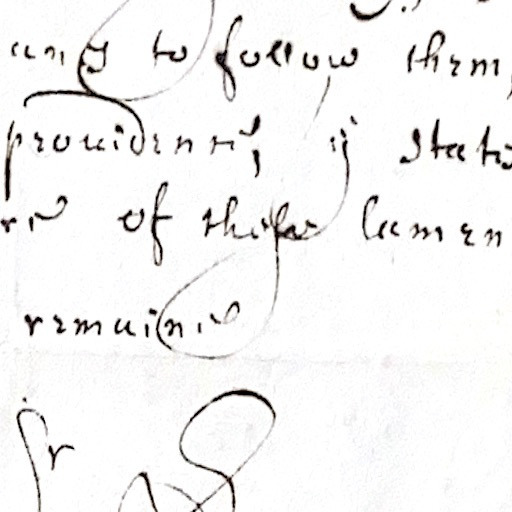 any to follow them,
prouidence, ij State
of these lamen
remaine
Sr